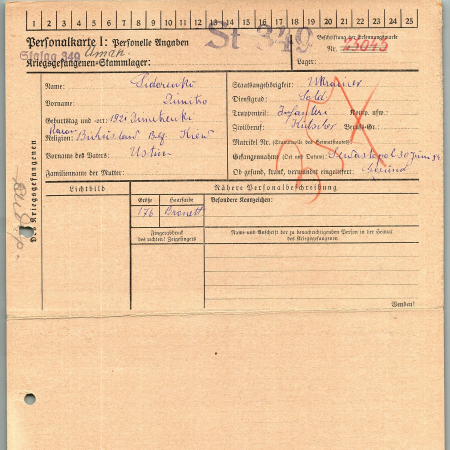 1 2 3 4 5 6 7 8 9 10 11 12 13 14 15 16 17 18 19 20 21 22 23 24 25
Personalkarte I: Personelle Angaben
St 349
Beschriftung der Erkennungsmarke
Nr. 23045
Stalag 349 Uman.
Kriegsgefangenen-Stammlager:
Lager:
Des Kriegsgefangenen
Name: Sidorenko
Vorname: Dmitro
Geburtstag und -ort: 1921
Religion: Kiew
Vorname des Vaters: Ustin
Familienname der Mutter:
Staatsangehörigkeit: Ukrainer
Dienstgrad: Sold.
Truppenteil: Infanteri Komp. usw.:
Zivilberuf: Kutscher Berufs-Gr.:
Matrikel Nr. (Stammrolle des Heimatstaates):
Gefangennahme (Ort und Datum): Sewastopol 30 Juni 42
Ob gesund, krank, verwundet eingeliefert: Gesund
Lichtbild
Nähere Personalbeschreibung
Größe Haarfarbe
Besondere Kennzeichen:
176 Bronett
Fingerabdruck
des rechten! Zeigefingers
Name und Anschrift der zu benachrichtigenden Person in der Heimat
des Kriegsgefangenen
Wenden!